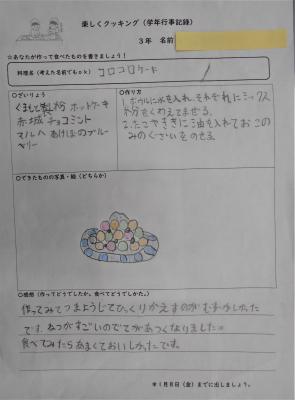 楽しくクッキング（学年行事記録）
３年 名前
☆あなたが作って食べたものを書きましょう！
料理名（考えた名前でもｏｋ） コロコロケーキ
○ざいりょう
くまもと製粉 ホットケーキ
赤城 チョコミント
マルハ あけぼのブルー
ベリー
○作り方
1.ボウルに水を入れ、それぞれにミックス
粉をくわえてまぜる。
2.たこやききに油を入れておこの
みのぐざいをのせる
○できたものの写真・絵（どちらか）
○感想（作ってどうでしたか。食べてどうでしたか。）
作ってみてつまようじでひっくりかえすのがむずかしかった
です。ねつがすごいのでてがあつくなりました。
食べてみたらあまくておいしかったです。
＊１月８日（金）までに出しましょう。